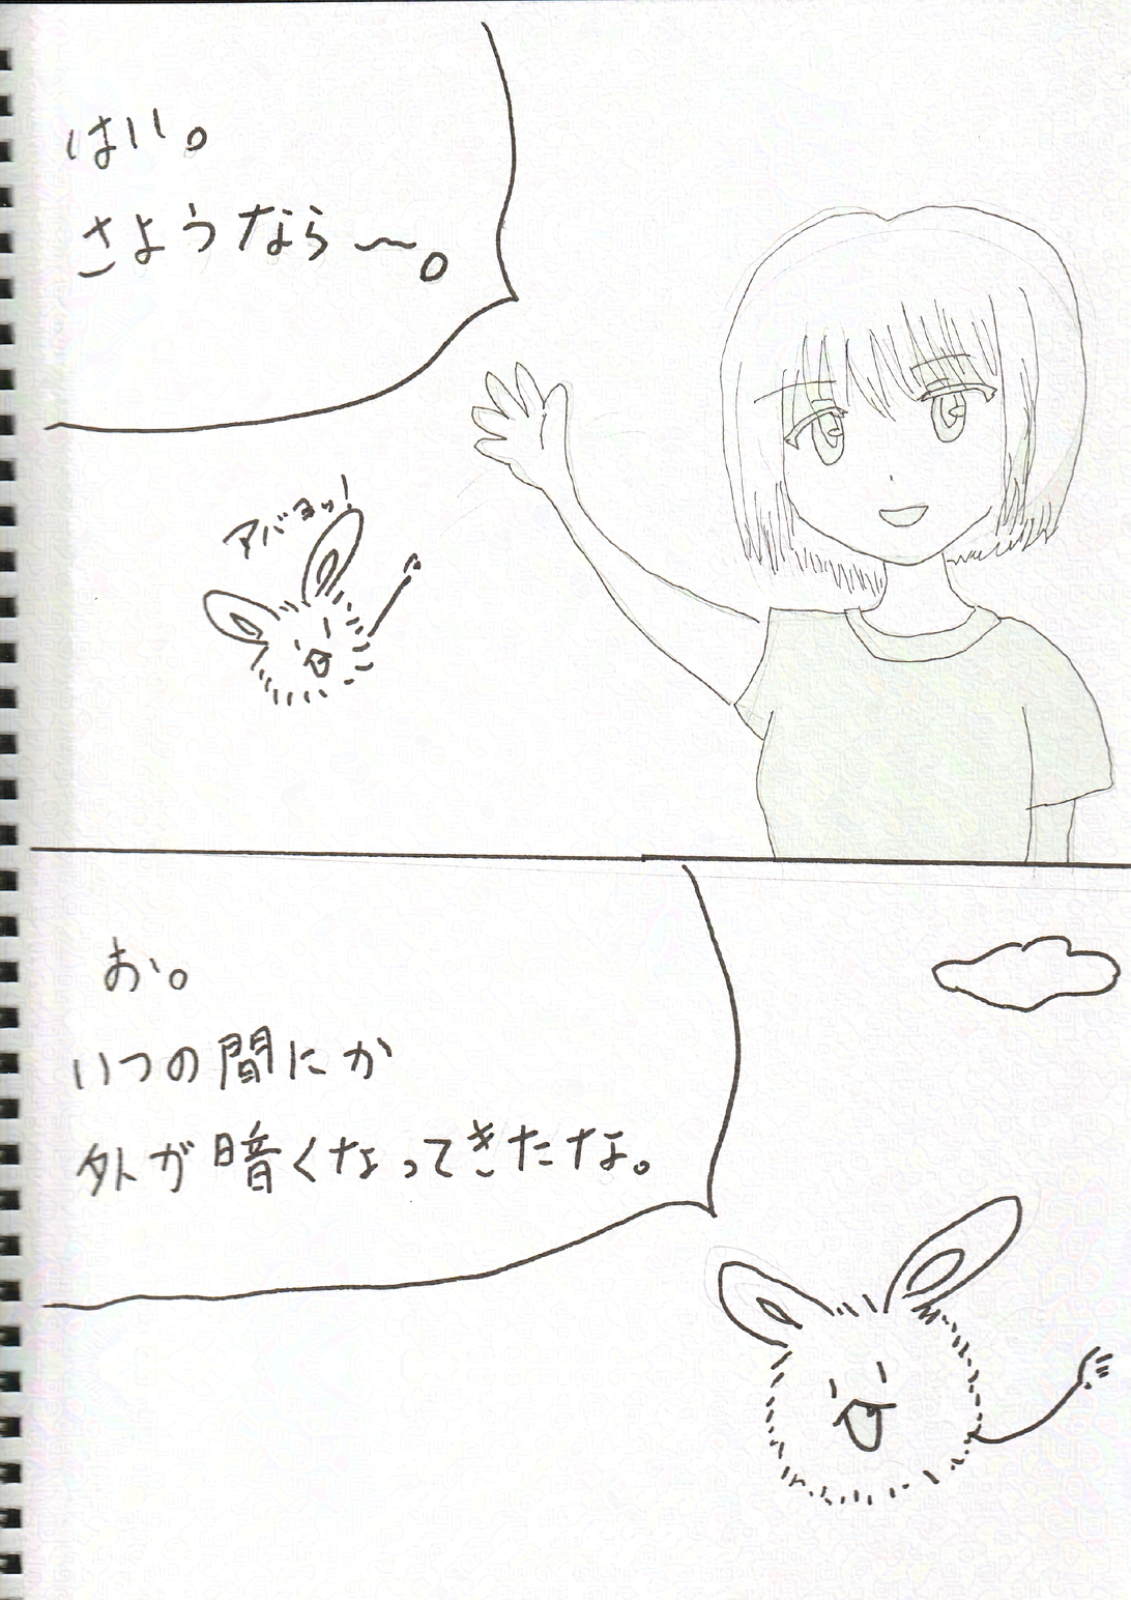 はい。
さようなら〜。
アバヨッ!
お。
いつの間にか
外が暗くなってきたな。